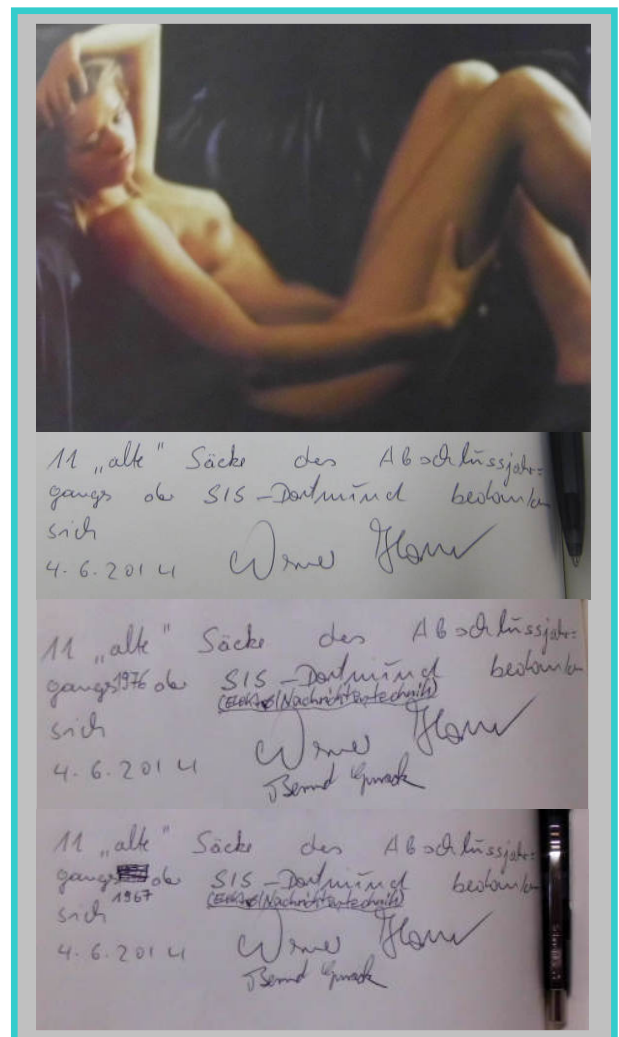 11 „alte" Säcke des Abschlussjahr=
gangs der SIS-Dortmund bedanken
sich
4.6.2014 Werner
11 „alte" Säcke des Abschlussjahr=
gangs 1976 der SIS-Dortmund bedanken
(Nachrichtentechnik)
sich
4.6.2014 Werner
Bernd
11 „alte" Säcke des Abschlussjahr=
gangs der SIS-Dortmund bedanken
1967 (Nachrichtentechnik)
sich
4.6.2014 Werner
Bernd